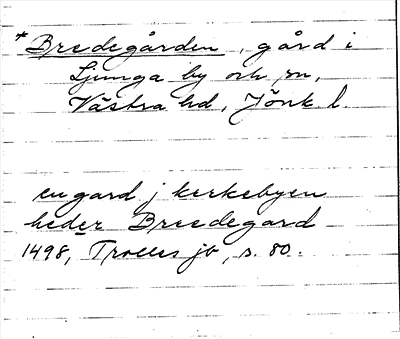 *Bredegården, gård i
Ljunga by och sn,
Västra hd, Jönk l.
en gard j kirkebyen
heder Breedegard
1498, Trolles jb, s. 80.